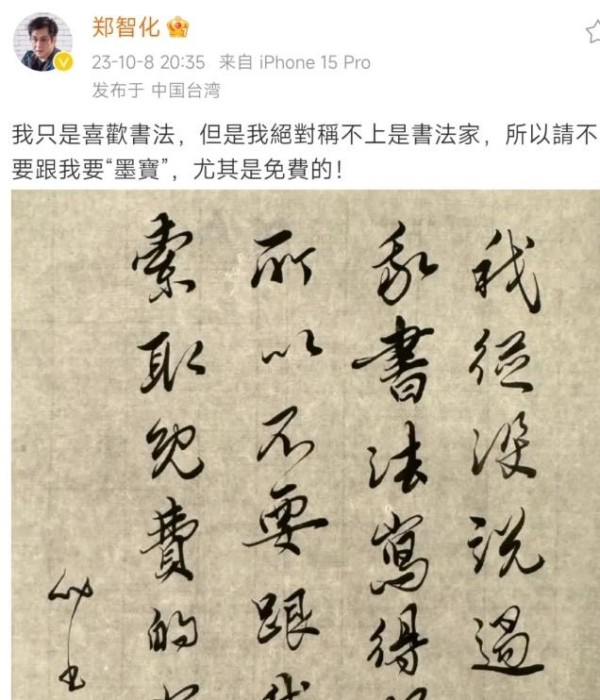 郑智化
23-10-8 20:35 来自 iPhone 15 Pro
发布于 中国台湾
我只是喜歡書法，但是我絕對稱不上是書法家，所以請不
要跟我要“墨寶”，尤其是免費的！
我從沒說過
我書法寫得
所以不要跟我
索取免費的